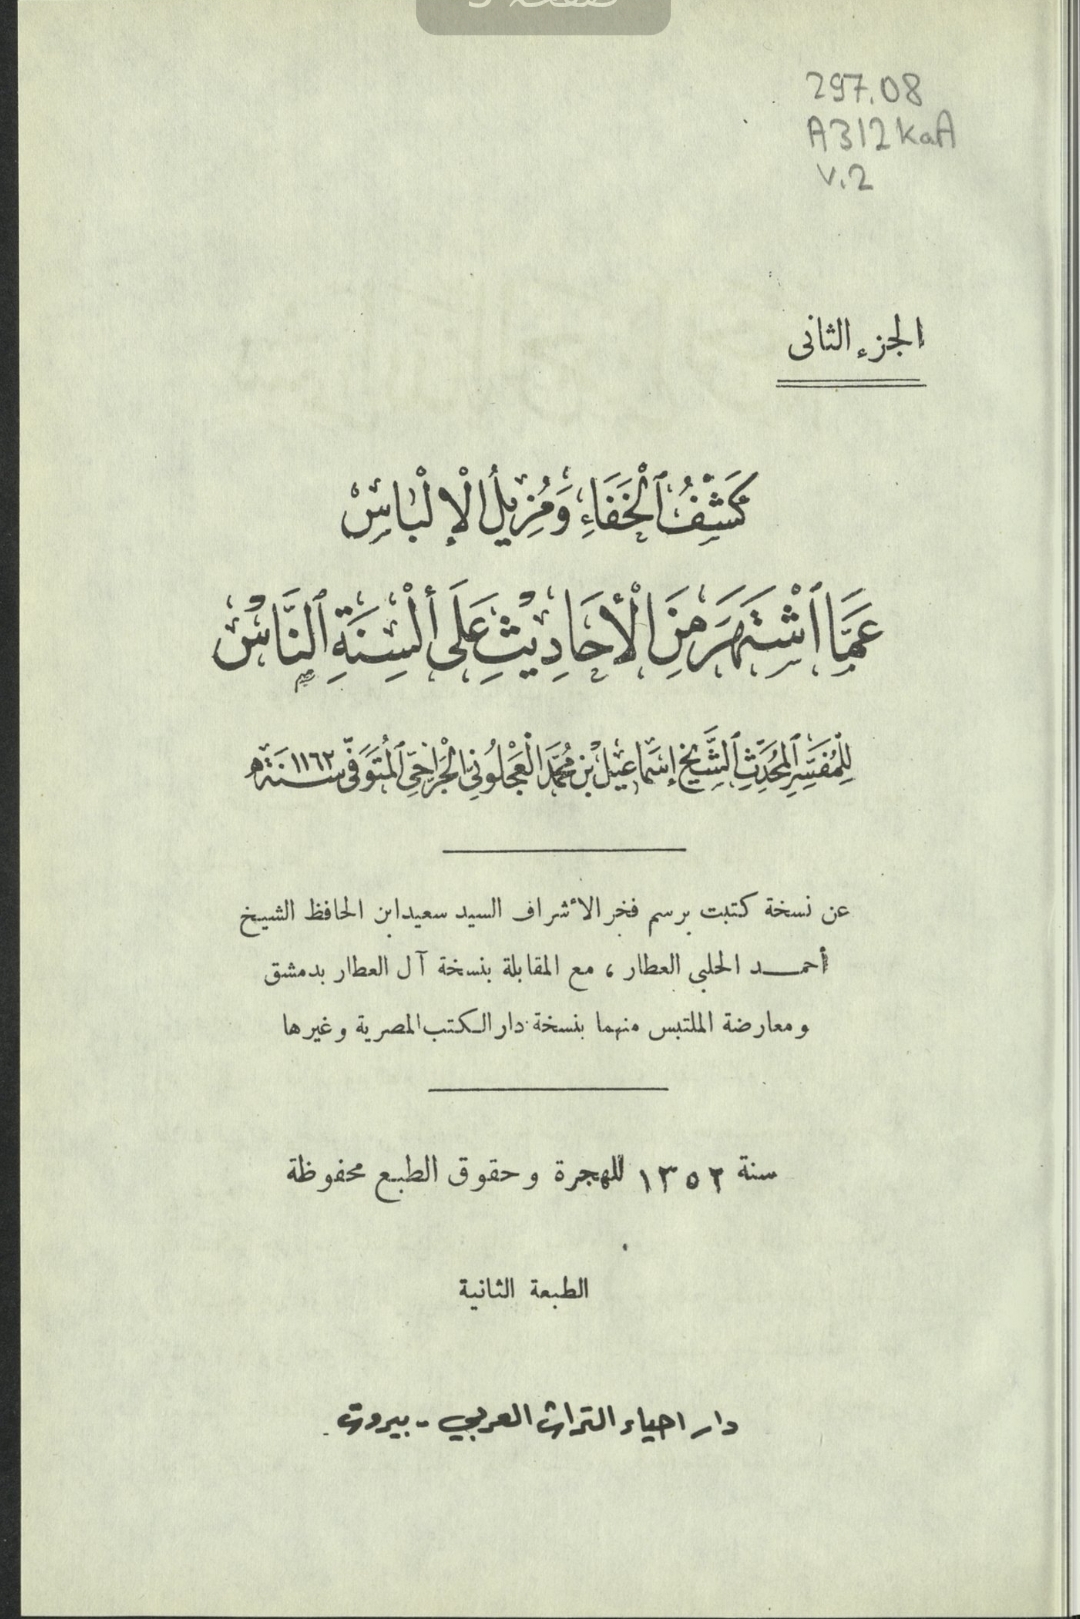 صفحة 5
297.08
A312kaA
v.2
الجزء الثانى
كَشْفُ ٱلْخَفَاءِ وَمُزِيلُ الْإِلْبَاسْ
عَمَّا ٱشْتَهَرَ مِنَ الْأَحَادِيثِ عَلَى أَلْسِنَةِ ٱلنَّاسْ
لِلْمُفَسِّرِ ٱلْمُحَدِّثِ ٱلشَّيْخِ إِسْمَاعِيلَ بْنِ مُحَمَّدٍ الْعَجْلُونِي الْجَرَّاحِيِّ ٱلْمُتَوَفَّى سَنَةَ ١١٦٢ هـ
عن نسخة كتبت برسم فخر الأشراف السيد سعيد ابن الحافظ الشيخ
أحمـــد الحلبى العطار ، مع المقابلة بنسخة آل العطار بدمشق
ومعارضة الملتبس منهما بنسخة دار الكتب المصرية وغيرها
سنة ١٣٥٢ للهجرة وحقوق الطبع محفوظة
الطبعة الثانية
دار احياء التراث العربي - بيروت